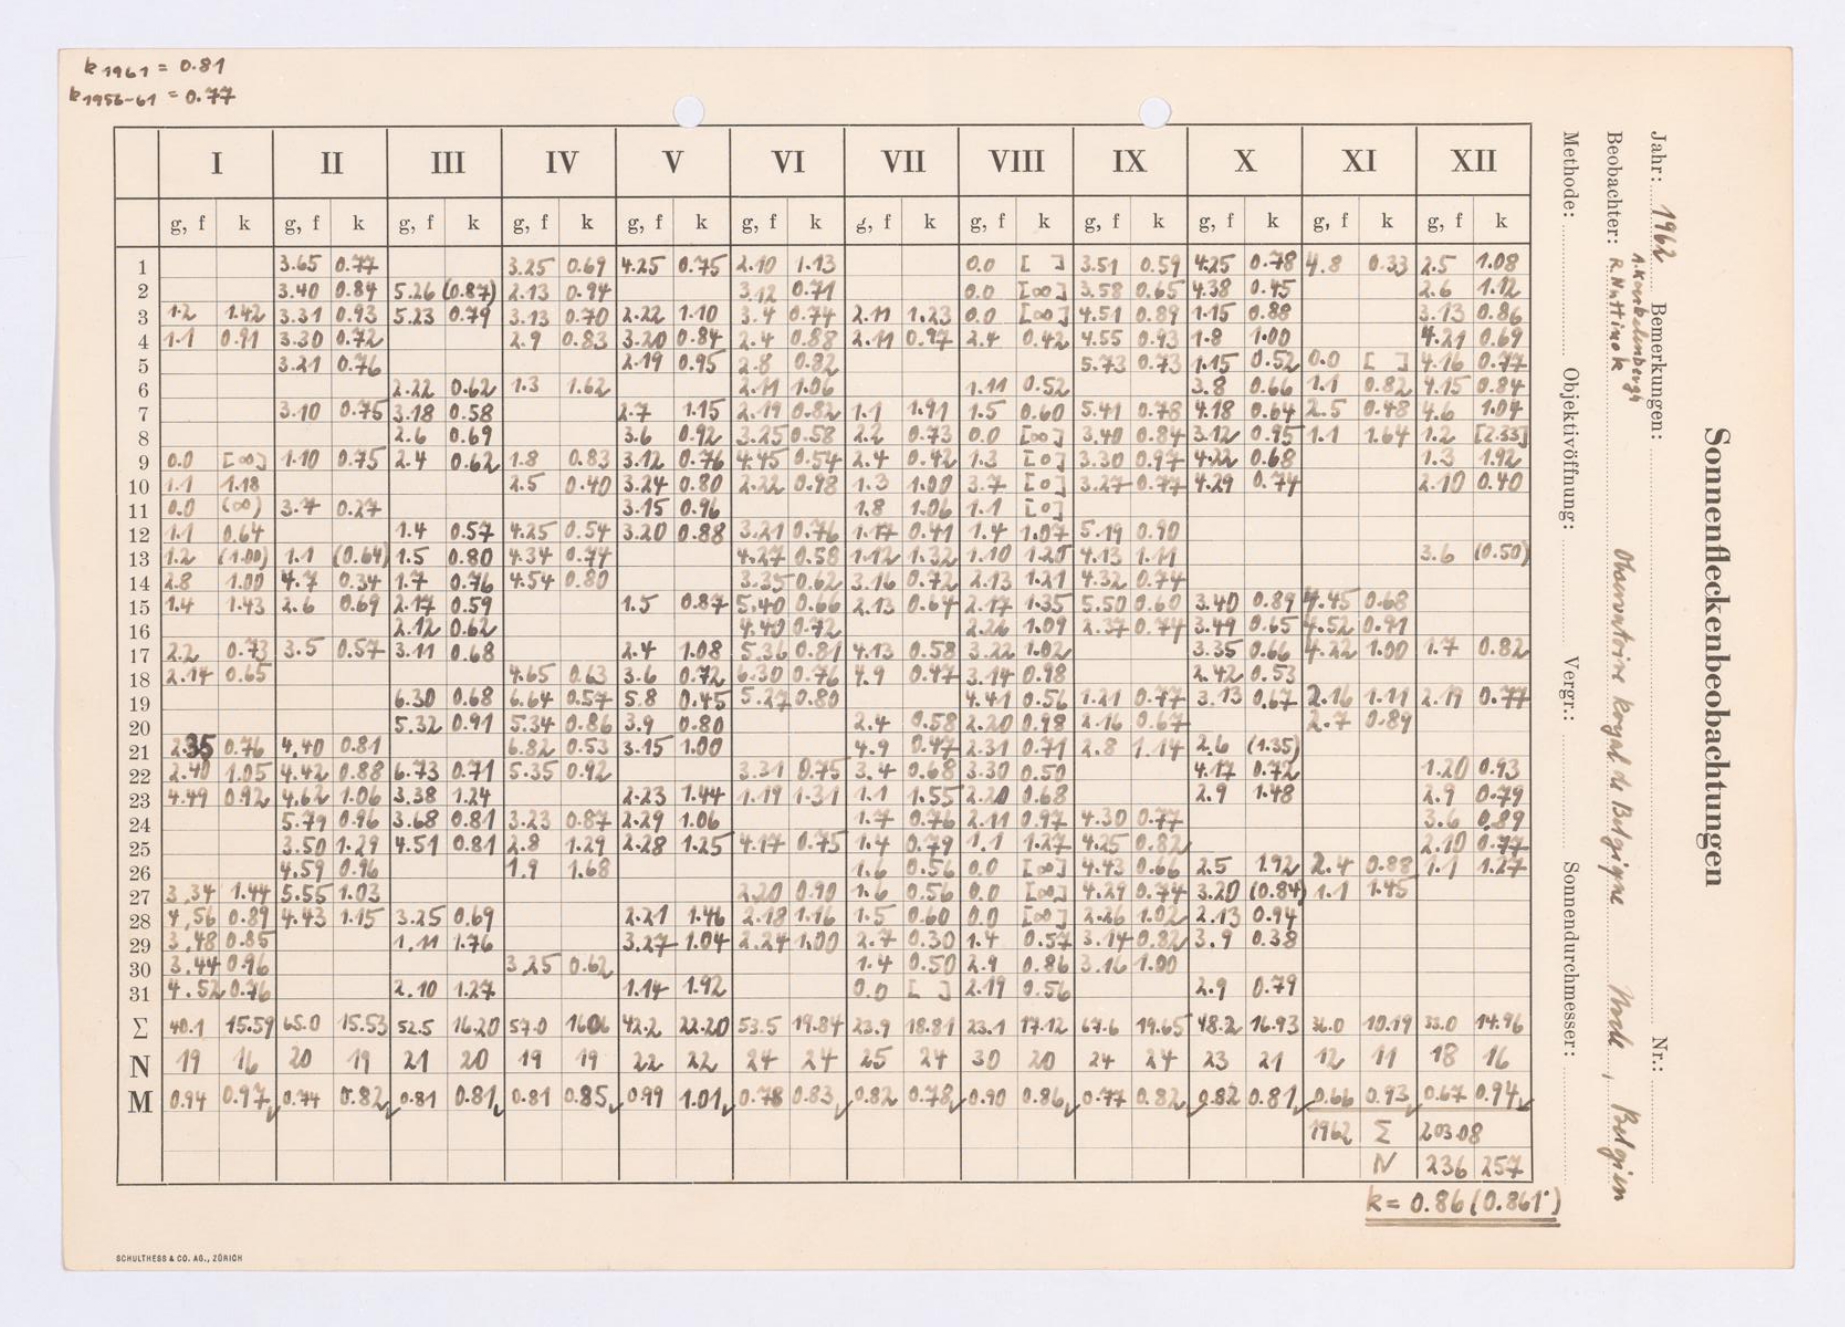 k 1961 = 0.81
k 1956-61 = 0.77
I II III IV V VI VII VIII IX X XI XII
g, f k g, f k g, f k g, f k g, f k g, f k g, f k g, f k g, f k g, f k g, f k g, f k
1 3.65 0.77 3.25 0.69 4.25 0.75 2.10 1.13 0.0 [ ] 3.51 0.59 4.25 0.78 4.8 0.33 2.5 1.08
2 3.40 0.84 5.26 (0.87) 2.13 0.94 3.12 0.71 0.0 [∞] 3.58 0.65 4.38 0.45 2.6 1.12
3 1.2 1.42 3.31 0.93 5.23 0.79 3.13 0.70 2.22 1.10 3.4 0.74 2.11 1.23 0.0 [∞] 4.51 0.89 1.15 0.88 3.13 0.86
4 1.1 0.91 3.30 0.72 2.9 0.83 3.20 0.84 2.4 0.88 2.11 0.97 2.4 0.42 4.55 0.93 1.8 1.00 4.21 0.69
5 3.21 0.76 2.19 0.95 2.8 0.82 5.73 0.73 1.15 0.52 0.0 [ ] 4.16 0.77
6 2.22 0.62 1.3 1.62 2.11 1.06 1.11 0.52 3.8 0.66 1.1 0.82 4.15 0.84
7 3.10 0.75 3.18 0.58 2.7 1.15 2.19 0.82 1.1 1.91 1.5 0.60 5.41 0.78 4.18 0.64 2.5 0.48 4.6 1.04
8 2.6 0.69 3.6 0.92 3.25 0.58 2.2 0.73 0.0 [∞] 3.40 0.84 3.12 0.95 1.1 1.64 1.2 [2.33]
9 0.0 [∞] 1.10 0.75 2.4 0.62 1.8 0.83 3.12 0.76 4.45 0.54 2.4 0.42 1.3 [0] 3.30 0.97 4.22 0.68 1.3 1.92
10 1.1 1.18 2.5 0.40 3.24 0.80 2.22 0.98 1.3 1.00 3.7 [0] 3.27 0.77 4.29 0.74 2.10 0.40
11 0.0 (∞) 3.7 0.27 3.15 0.96 1.8 1.06 1.1 [0]
12 1.1 0.64 1.4 0.57 4.25 0.54 3.20 0.88 3.21 0.76 1.17 0.41 1.4 1.07 5.19 0.90
13 1.2 (1.00) 1.1 (0.64) 1.5 0.80 4.34 0.74 4.27 0.58 1.12 1.32 1.10 1.20 4.13 1.11 3.6 (0.50)
14 2.8 1.00 4.7 0.34 1.7 0.76 4.54 0.80 3.35 0.62 3.16 0.72 2.13 1.21 4.32 0.74
15 1.4 1.43 2.6 0.69 2.17 0.59 1.5 0.87 5.40 0.66 2.13 0.64 2.17 1.35 5.50 0.60 3.40 0.89 4.45 0.68
16 2.12 0.62 4.40 0.72 2.26 1.09 2.37 0.74 3.49 0.65 4.52 0.91
17 2.2 0.73 3.5 0.57 3.11 0.68 2.4 1.08 5.36 0.81 4.13 0.58 3.22 1.02 3.35 0.66 4.22 1.00 1.7 0.82
18 2.14 0.65 4.65 0.63 3.6 0.72 6.30 0.76 4.9 0.47 3.14 0.98 2.42 0.53
19 6.30 0.68 6.64 0.57 5.8 0.45 5.27 0.80 4.41 0.56 1.21 0.77 3.13 0.67 2.16 1.11 2.19 0.77
20 5.32 0.91 5.34 0.86 3.9 0.80 2.4 0.58 2.20 0.98 2.16 0.67 2.7 0.89
21 2.35 0.76 4.40 0.81 6.82 0.53 3.15 1.00 4.9 0.47 2.31 0.71 2.8 1.14 2.6 (1.35)
22 2.40 1.05 4.42 0.88 6.73 0.71 5.35 0.92 3.31 0.75 3.4 0.68 3.30 0.50 4.17 0.72 1.20 0.93
23 4.49 0.92 4.62 1.06 3.38 1.24 2.23 1.44 1.19 1.31 1.1 1.55 2.20 0.68 2.9 1.48 2.9 0.79
24 5.79 0.96 3.68 0.81 3.23 0.87 2.29 1.06 1.7 0.76 2.11 0.97 4.30 0.77 3.6 0.89
25 3.50 1.29 4.51 0.81 2.8 1.29 2.28 1.25 4.17 0.75 1.4 0.79 1.1 1.27 4.25 0.82 2.10 0.77
26 4.59 0.96 1.9 1.68 1.6 0.56 0.0 [∞] 4.43 0.66 2.5 1.92 2.4 0.88 1.1 1.27
27 3.34 1.44 5.55 1.03 2.20 0.90 1.6 0.56 0.0 [∞] 4.29 0.74 3.20 (0.84) 1.1 1.45
28 4.56 0.89 4.43 1.15 3.25 0.69 2.21 1.46 2.18 1.16 1.5 0.60 0.0 [∞] 2.26 1.02 2.13 0.94
29 3.48 0.85 1.11 1.76 3.27 1.04 2.24 1.00 2.7 0.30 1.4 0.57 3.14 0.82 3.9 0.38
30 3.44 0.96 3.25 0.62 1.4 0.50 2.9 0.86 3.16 1.00
31 4.52 0.76 2.10 1.27 1.14 1.92 0.0 [ ] 2.19 0.56 2.9 0.79
Σ 40.1 15.59 65.0 15.53 52.5 16.20 57.0 16.06 42.2 22.20 53.5 19.84 23.9 18.81 23.1 17.12 67.6 19.65 48.2 16.93 36.0 10.19 33.0 14.96
N 19 16 20 19 21 20 19 19 22 22 24 24 25 24 30 20 24 24 23 21 12 11 18 16
M 0.94 0.97 0.74 0.82 0.81 0.81 0.81 0.85 0.99 1.01 0.78 0.83 0.82 0.78 0.90 0.86 0.77 0.82 0.82 0.81 0.66 0.93 0.67 0.94
1962 Σ 203.08
N 236 257
k = 0.86 (0.861)
SCHULTHESS & CO. AG., ZÜRICH
Sonnenfleckenbeobachtungen
Jahr: 1962 Bemerkungen: Nr.:
Beobachter: Observatoire Royal de Belgique Uccle, Belgien
Methode: Objektivöffnung: Vergr.: Sonnendurchmesser: